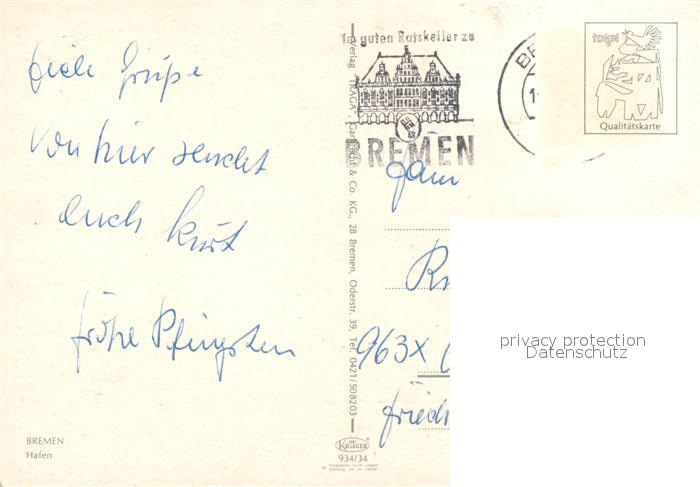 Viele Grüße
von hier sendet
Euch Kurt
frohe Pfingsten
BREMEN
Hafen
Im guten Ratskeller zu
BREMEN
Verlag "RAGA" Garbrecht & Co. KG., 28 Bremen, Oderstr. 39, Tel. 0421/508203
KRÜGER
934/34
Qualitätskarte
Fam
963x
Fried
privacy protection
Datenschutz